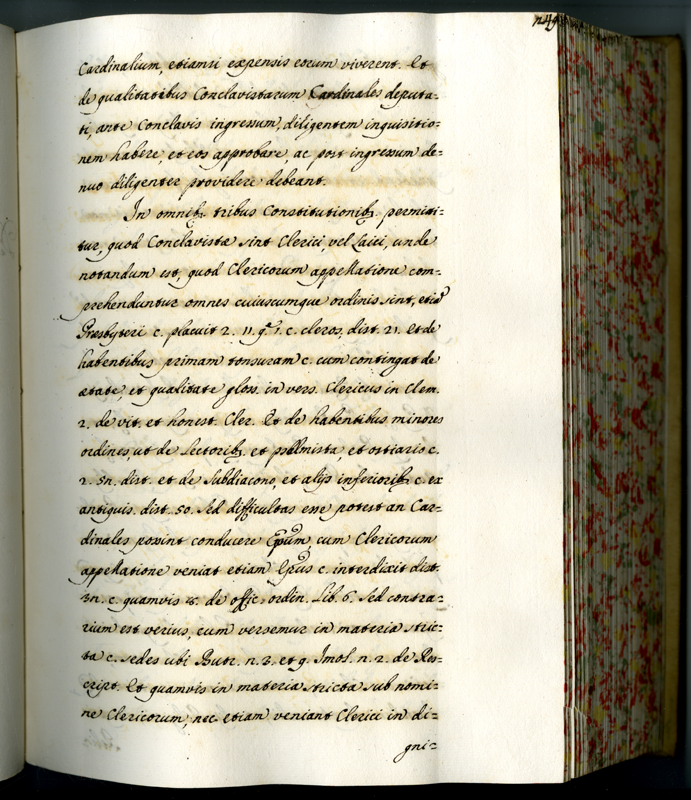 Cardinalium, etiamsi expensis eorum viverent. Et
de qualitatibus Conclavistarum Cardinales deputa=
ti, ante Conclavis ingressum, diligentem inquisitio=
nem habere, et eos approbare, ac post ingressum de=
nuo diligenter providere debeant.
In omnib. tribus Constitutionib. permitti=
tur, quod Conclavistæ sint Clerici, vel Laici, unde
notandum est, quod Clericorum appellatione com=
prehenduntur omnes cuiuscumque ordinis sint, etia
Præsbyteri c. placuit 2. 11. q. 1. c. cleros. dist. 21. et de
habentibus primam tonsuram c. cum contingat de
ætate, et qualitate glos. in vers. Clericus in Clem.
2. de vit. et honest. Cler. Et de habentibus minores
ordines, ut de Lectorib. et psalmista, et ostiaris c.
2. dist. et de Subdiacono, et alijs inferiorib. c. ex
antiquis. dist. 50. Sed difficultas esse potest an Car=
dinales possint conducere Epum, cum Clericorum
appellatione veniat etiam Epus c. interdixit dist.
c. quamvis de offic. ordin. Lib. 6. Sed contra=
rium est verius, cum versemur in materia stric=
ta c. sedes ubi Butr. n. 3. et 9. Imol. n. 2. de Res=
cript. Et quamvis in materia stricta sub nomi=
ne Clericorum, nec etiam veniant Clerici in di=
gni=